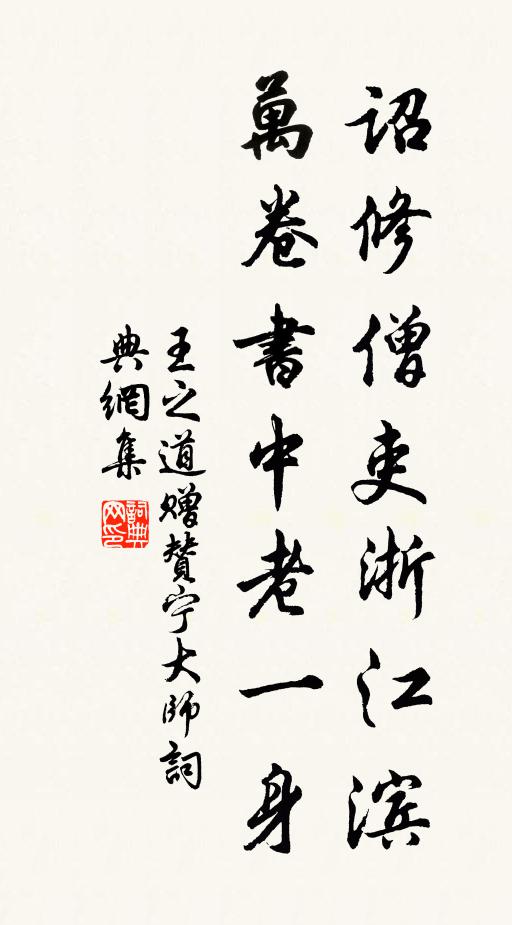 詔修僧吏浙江滨
萬卷書中老一身
王之道贈贊宁大師詞
典網集
詞典
网印